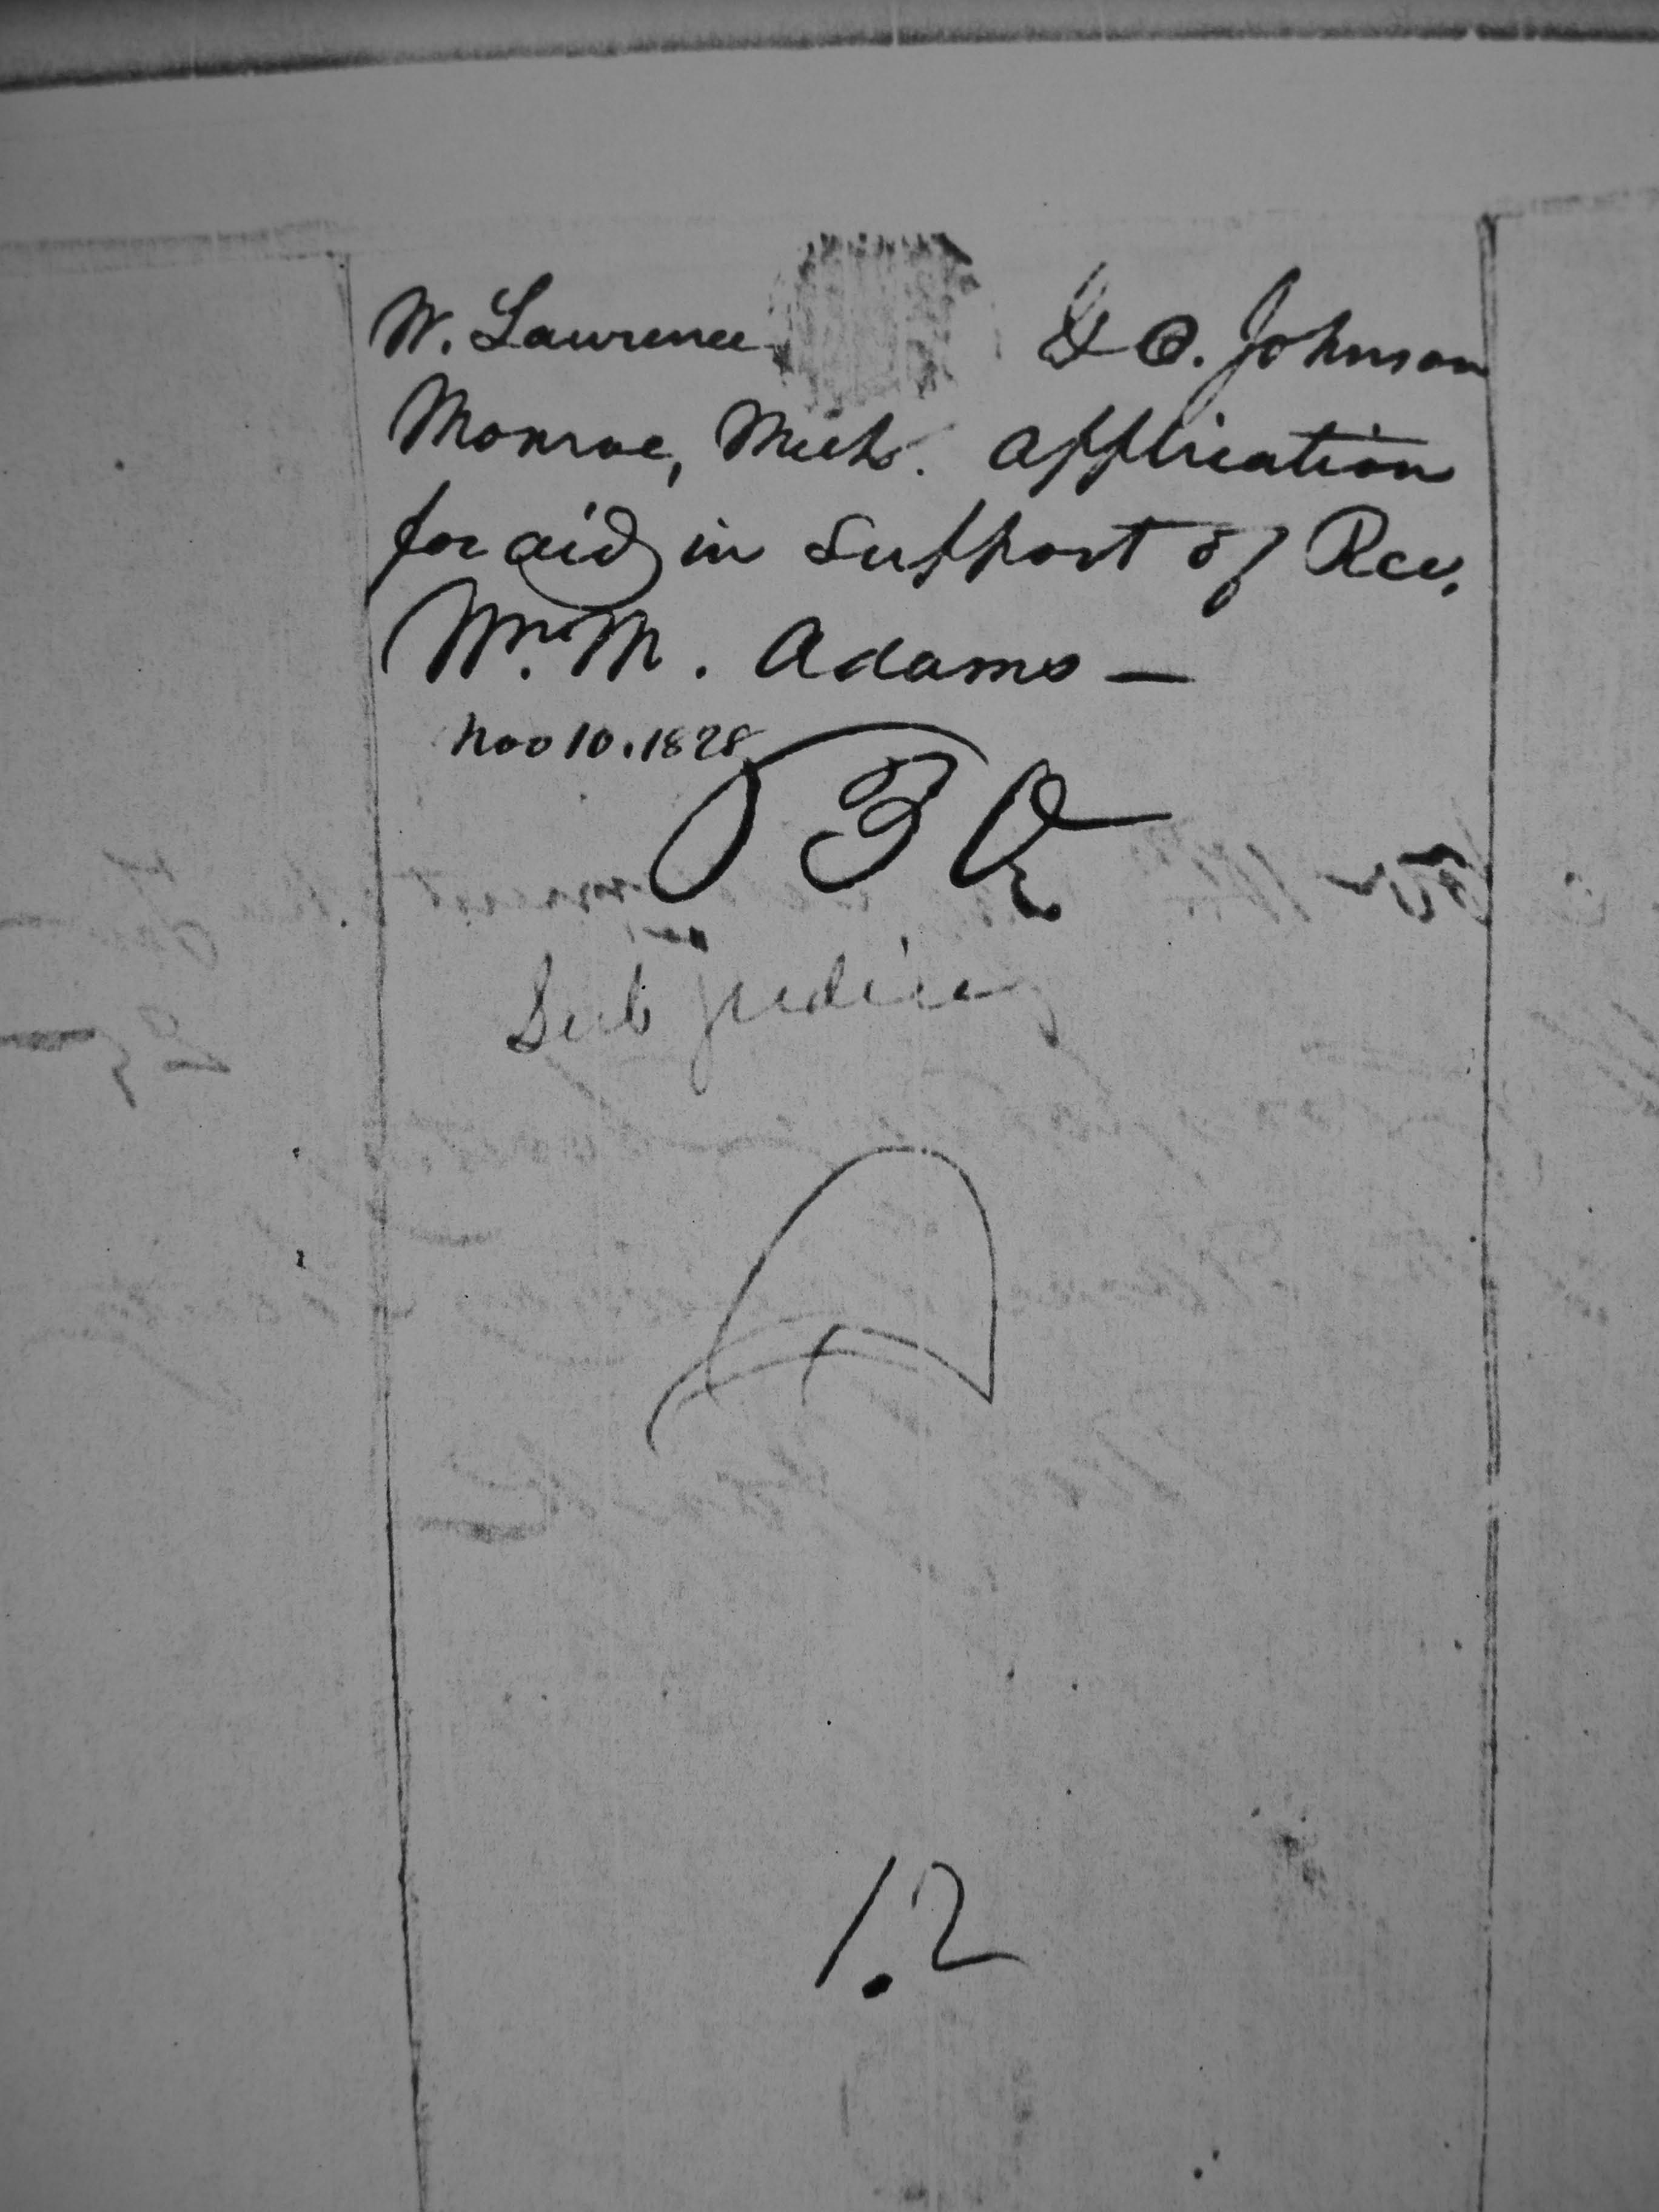 W. Lawrence & O. Johnson
Monroe, Mich. Application
for aid in Support of Rev.
Wm. M. Adams —
Nov 10. 1828
Sub judice
A
12